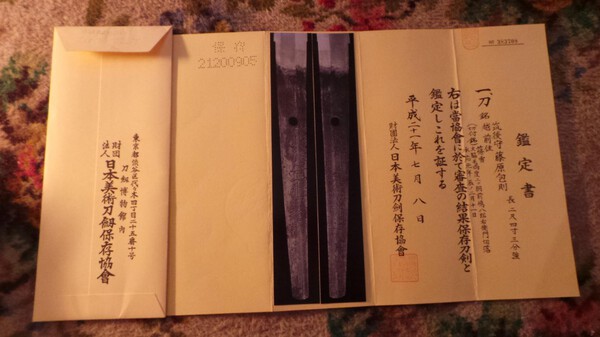 鑑定書
一、刀
銘 越前住
筑後守藤原包則
長 二尺四寸三分強
右は當協會に於て審査の結果保存刀剣と
鑑定しこれを証する
平成二十一年七月八日
財団法人 日本美術刀剣保存協會
保存
21200905
東京都渋谷区代々木四丁目二十五番十号
刀剣博物館内
財団
法人
日本美術刀剣保存協會